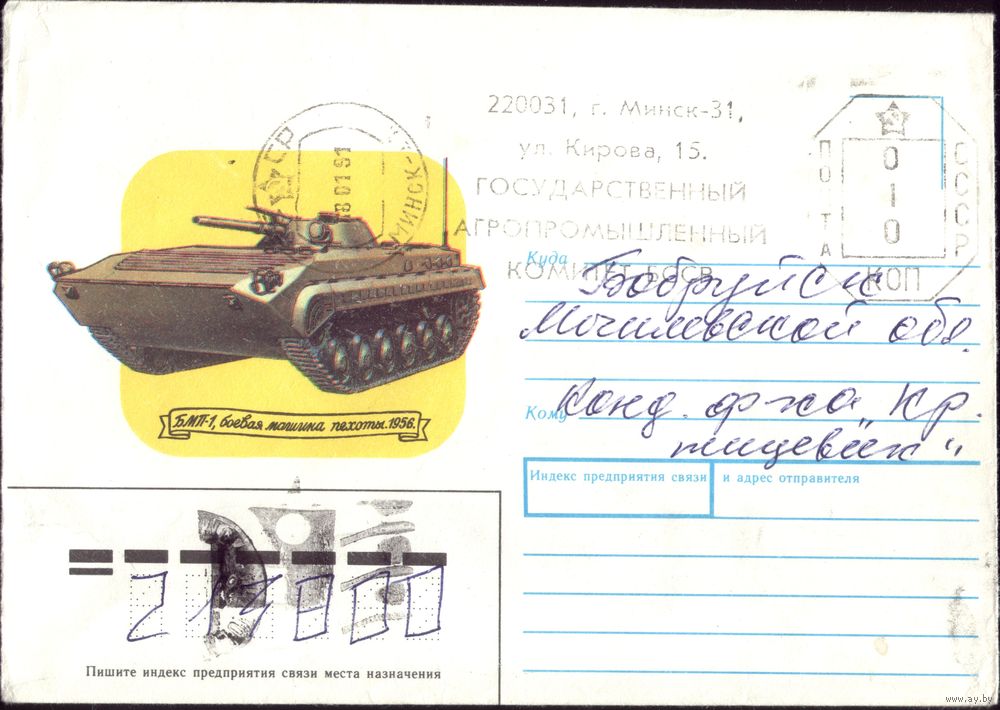 220031, г. Минск-31,
ул. Кирова, 15.
ГОСУДАРСТВЕННЫЙ
АГРОПРОМЫШЛЕННЫЙ
КОМИТЕТ БССР
ПОЧТА
0
1
0
СССР
КОП
МИНСК-
18 01 91
БМП-1, боевая машина пехоты. 1956.
Куда Бобруйск
Могилевской обл.
Кому Конд. ф-ка „Кр.
пищевик"
Индекс предприятия связи и адрес отправителя
Пишите индекс предприятия связи места назначения
www.ay.by